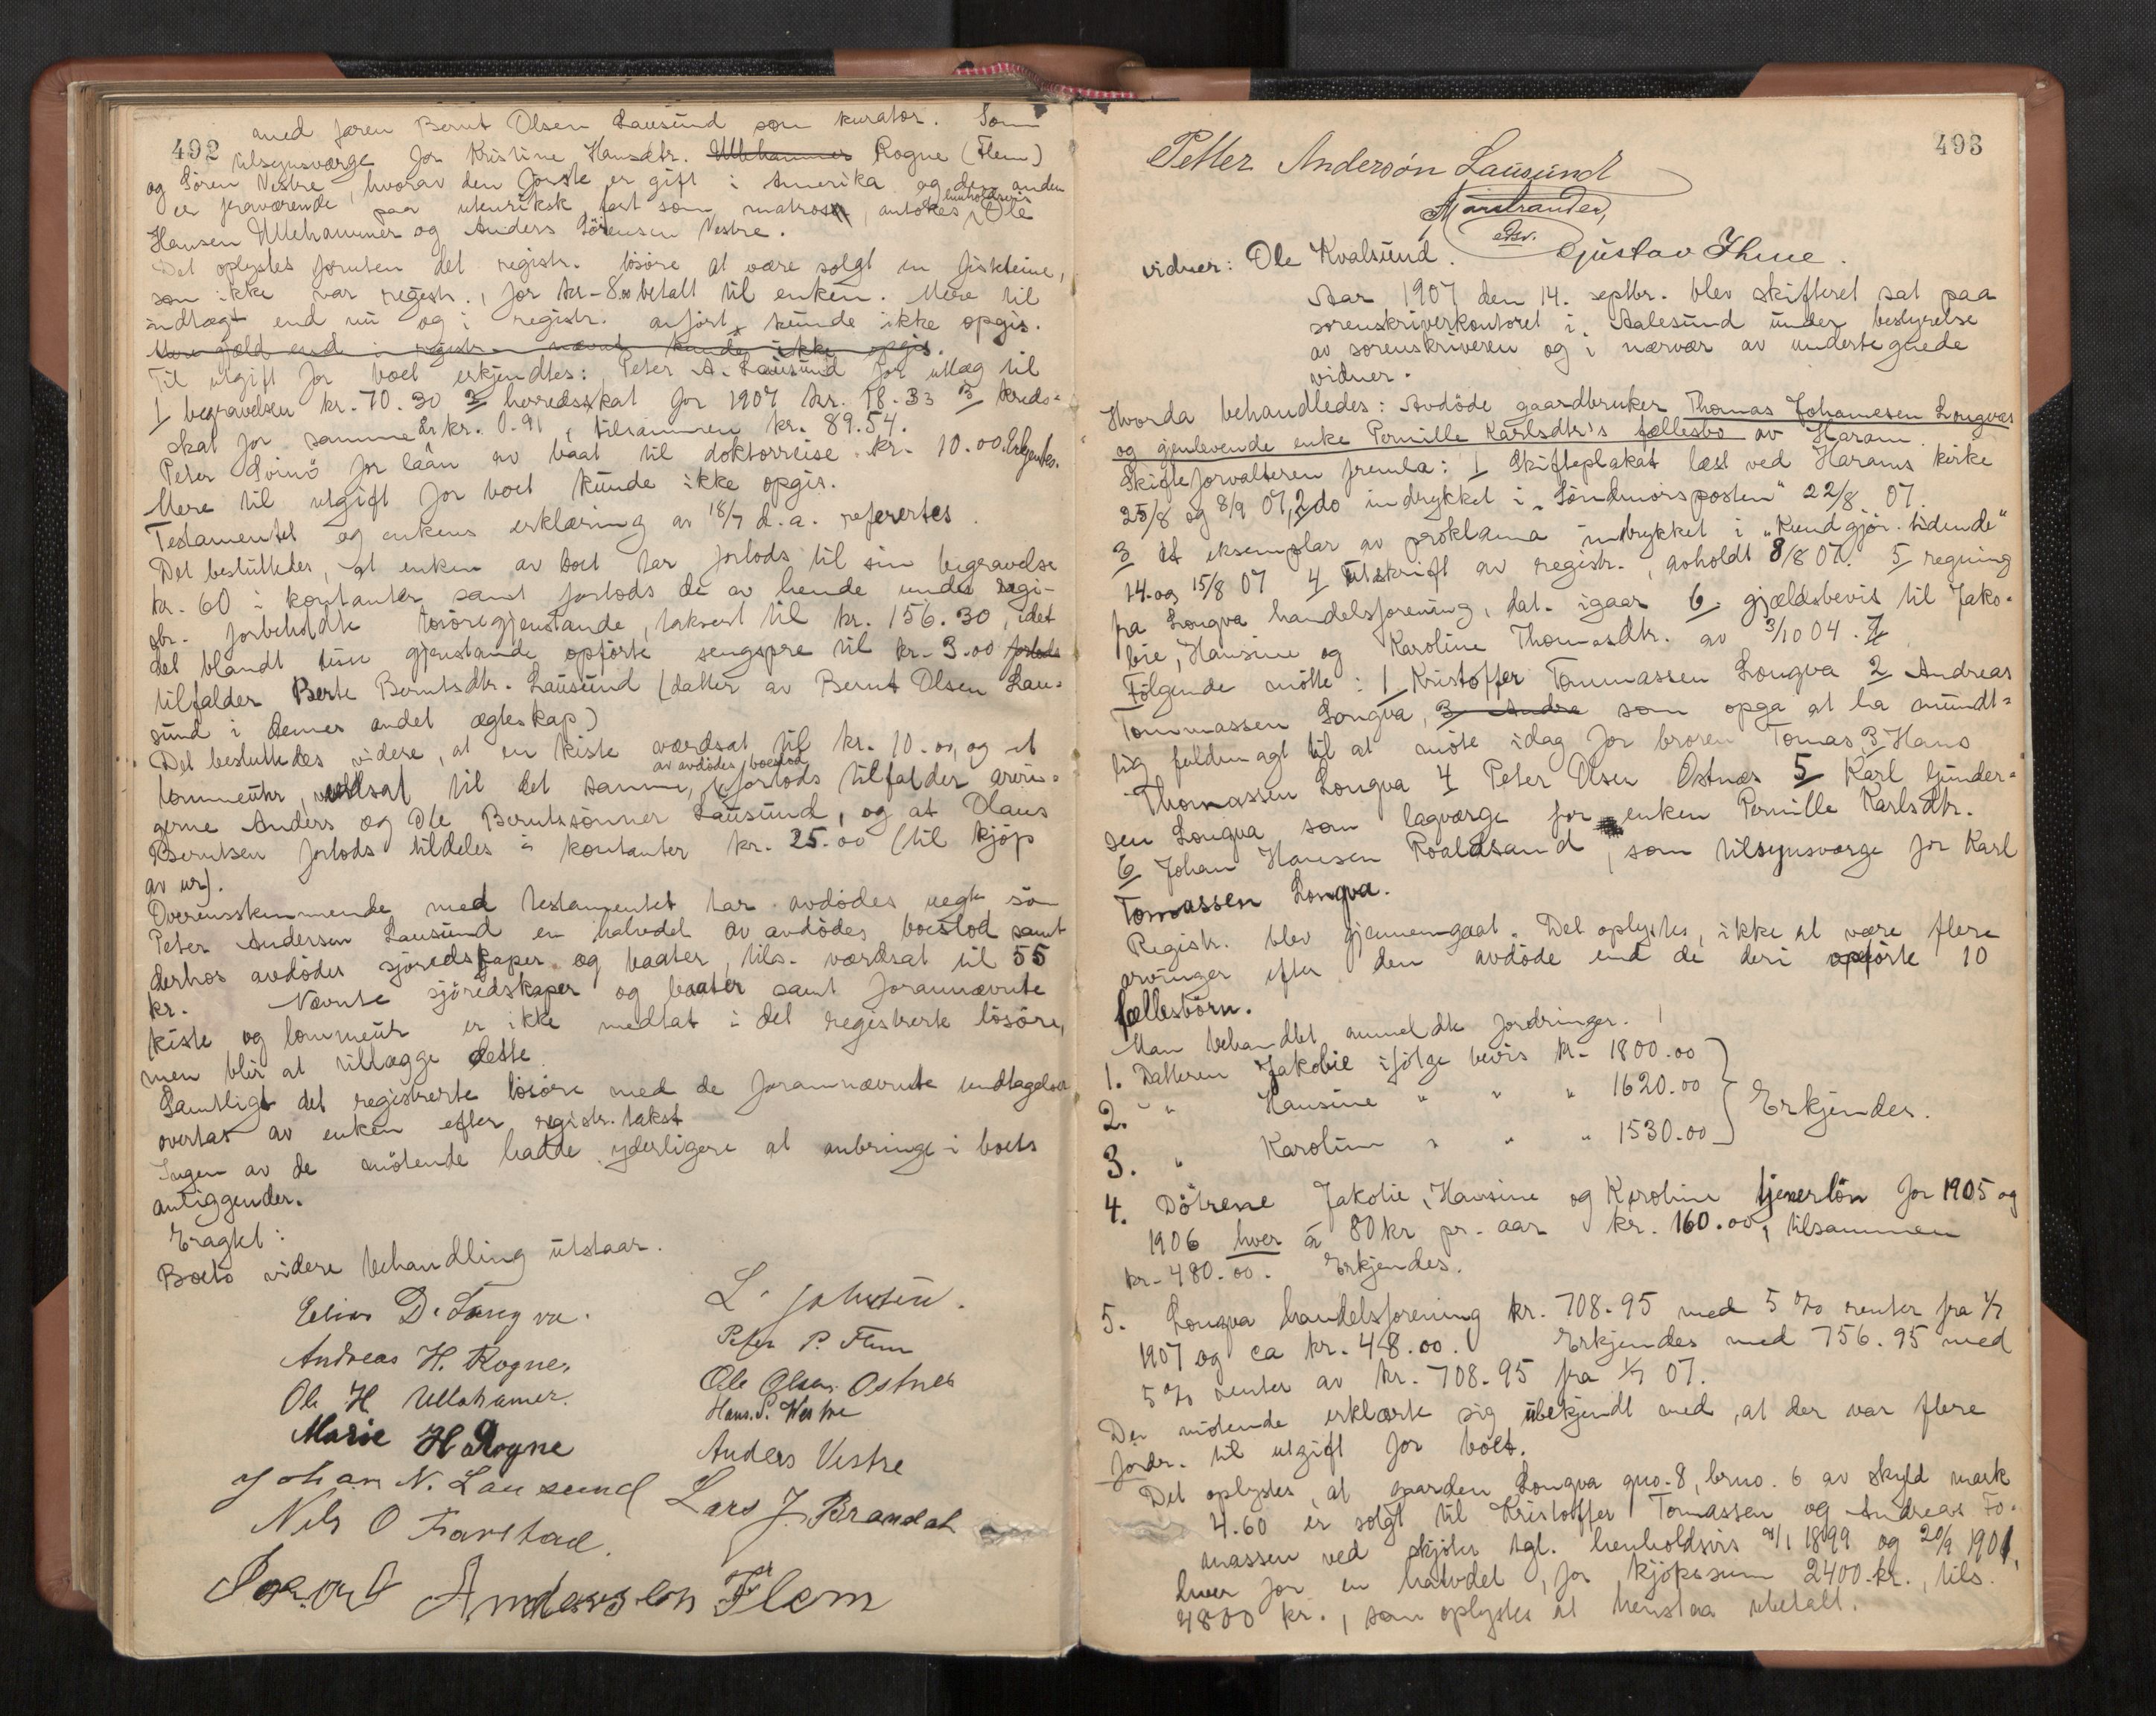 492
med faren Bernt Olsen Lausund som kurator. Som
tilsynsværge for Kristine Hansdtr. Ullehammer Rogne (Flem)
og Sören Vestre, hvorav den förste er gift i Amerika og den anden
er fraværende paa utenriksk fart som matros, antokes henholdsvis Ole
Hansen Ullehammer og Anders Sörensen Vestre.
Det oplystes foruten det registr. lösöre at være solgt en fisketeine,
som ikke var registr., for kr. 8.00 betalt til enken. Mere til
indtægt end nu og i registr. anfört kunde ikke opgis.
Mere gjæld end i registr. nævnt kunde ikke opgis.
Til utgift for boet erkjendtes: Peter A. Lausund for utlæg til
1 begravelsen kr. 70.30 2 herredsskat for 1907 kr. 18.33 3 kreds-
skat for samme aar kr. 0.91, tilsammen kr. 89.54.
Peter Svinö for laan av baat til doktorreise kr. 10.00. Erkjendtes.
Mere til utgift for boet kunde ikke opgis.
Testamentet og enkens erklæring av 18/7 d.a. refereres.
Det besluttedes, at enken av boet har forlods til sin begravelse
kr. 60 i kontanter samt forlods de av hende under regi-
str. forbeholdte lösöregjenstande, taksert til kr. 156.30, idet
det blandt disse gjenstande opförte sengspre til kr. 3.00 forlods
tilfalder Berte Berntsdtr. Lausund (datter av Bernt Olsen Lau-
sund i dennes andet ægteskap)
Det besluttedes videre, at en kiste værdsat til kr. 10.00, og et
lommeuhr, værdsat til det samme, av avdödes boeslod forlods tilfalder arvin-
gerne Anders og Ole Berntssönner Lausund, og at Olaus
Berntsen forlods tildeles i kontanter kr. 25.00 (til kjöp
av ur).
Overensstemmende med testamentet har avdödes uegte sön
Peter Andersen Lausund en halvdel av avdödes boeslod samt
derhos avdödes sjöredskaper og baater, tils. værdsat til 55
kr. Nævnte sjöredskaper og baater samt forannævnte
kiste og lommeur er ikke medtat i det registrerte lösöre,
men blir at tillægge dette.
Samtlige det registrerte lösöre med de forannævnte undtagelser
overtas av enken efter registr. takst
Ingen av de mötende hadde yderligere at anbringe i boets
anliggender.
Eragtet:
Boets videre behandling utstaar.
Elias D. Longva.
Andreas H. Rogne.
Ole H Ullahamer.
Marie H Rogne
Johan N. Lausund
Nils O Farstad.
L. Johnsen.
Peter P. Flem
Ole Olsen Ostnes
Hans. S. Westre
Anders Vestre
Lars J. Brandal
Anderssen Flem
493
Petter Andersön Lausund
vidner: Ole Kvalsund. Gustav Thue.
Aar 1907 den 14. septbr. blev skifteret sat paa
sorenskriverkontoret i Aalesund under bestyrelse
av sorenskriveren og i nærvær av undertegnede
vidner.
Hvorda behandledes: Avdöde gaardbruker Thomas Johannesen Longvas
og gjenlevende enke Pernille Karlsdtr's fællesbo av Haram.
Skifteforvalteren fremla: 1 Skifteplakat læst ved Harams kirke
25/8 og 8/9 07, 2 do indrykket i "Söndmörsposten" 22/8 07.
3 et eksemplar av proklama indrykket i "Kundgjör. tidende"
14. og 15/8 07 4 Utskrift av registr., avholdt 8/8 07. 5 regning
fra Longva handelsforening, dat. igaar 6. gjældsbevis til Jako-
bie, Hansine og Karoline Thomasdtr. av 3/10 04. 7
Fölgende mötte: 1 Kristoffer Tommassen Longva 2 Andreas
Tommassen Longva, 3 Andre som opga at ha mundt-
lig fuldmagt til at möte idag for broren Tomas 3 Hans
Thomassen Longva 4 Peter Olsen Ostnæs 5 Karl Gunder-
sen Longva som lagværge for enken Pernille Karlsdtr.
6 Johan Hansen Roaldsand, som tilsynsværge for Karl
Tomassen Longva.
Registr. blev gjennemgaat. Det oplystes, ikke at være flere
arvinger efter den avdöde end de deri opförte 10
fællesbörn.
Man behandlet anmeldte fordringer.
1. Datteren Jakobie ifölge bevis kr. 1800.00
2. " Hansine " " " 1620.00 Erkjendes.
3. " Karoline " " " 1530.00
4. Dötrene Jakobie, Hansine og Karoline tjenerlön for 1905 og
1906 hver à 80 kr pr. aar kr. 160.00, tilsammen
kr. 480.00. Erkjendes.
5. Longva handelsforening kr. 708.95 med 5 % renter fra 1/7
1907 og ca kr. 48.00. Erkjendes med 756.95 med
5 % renter av kr. 708.95 fra 1/7 07.
De mötende erklærte sig ubekjendt med, at der var flere
fordr. til utgift for boet.
Det oplystes, at gaarden Longva gno. 8, brno. 6 av skyld mark
4.60 er solgt til Kristoffer Tomassen og Andreas To-
massen ved skjöter tgl. henholdsvis 1899 og 20/9 1901,
hver for en halvdel, for kjöpesum 2400 kr., tils.
4800 kr., som oplystes at henstaa ubetalt.